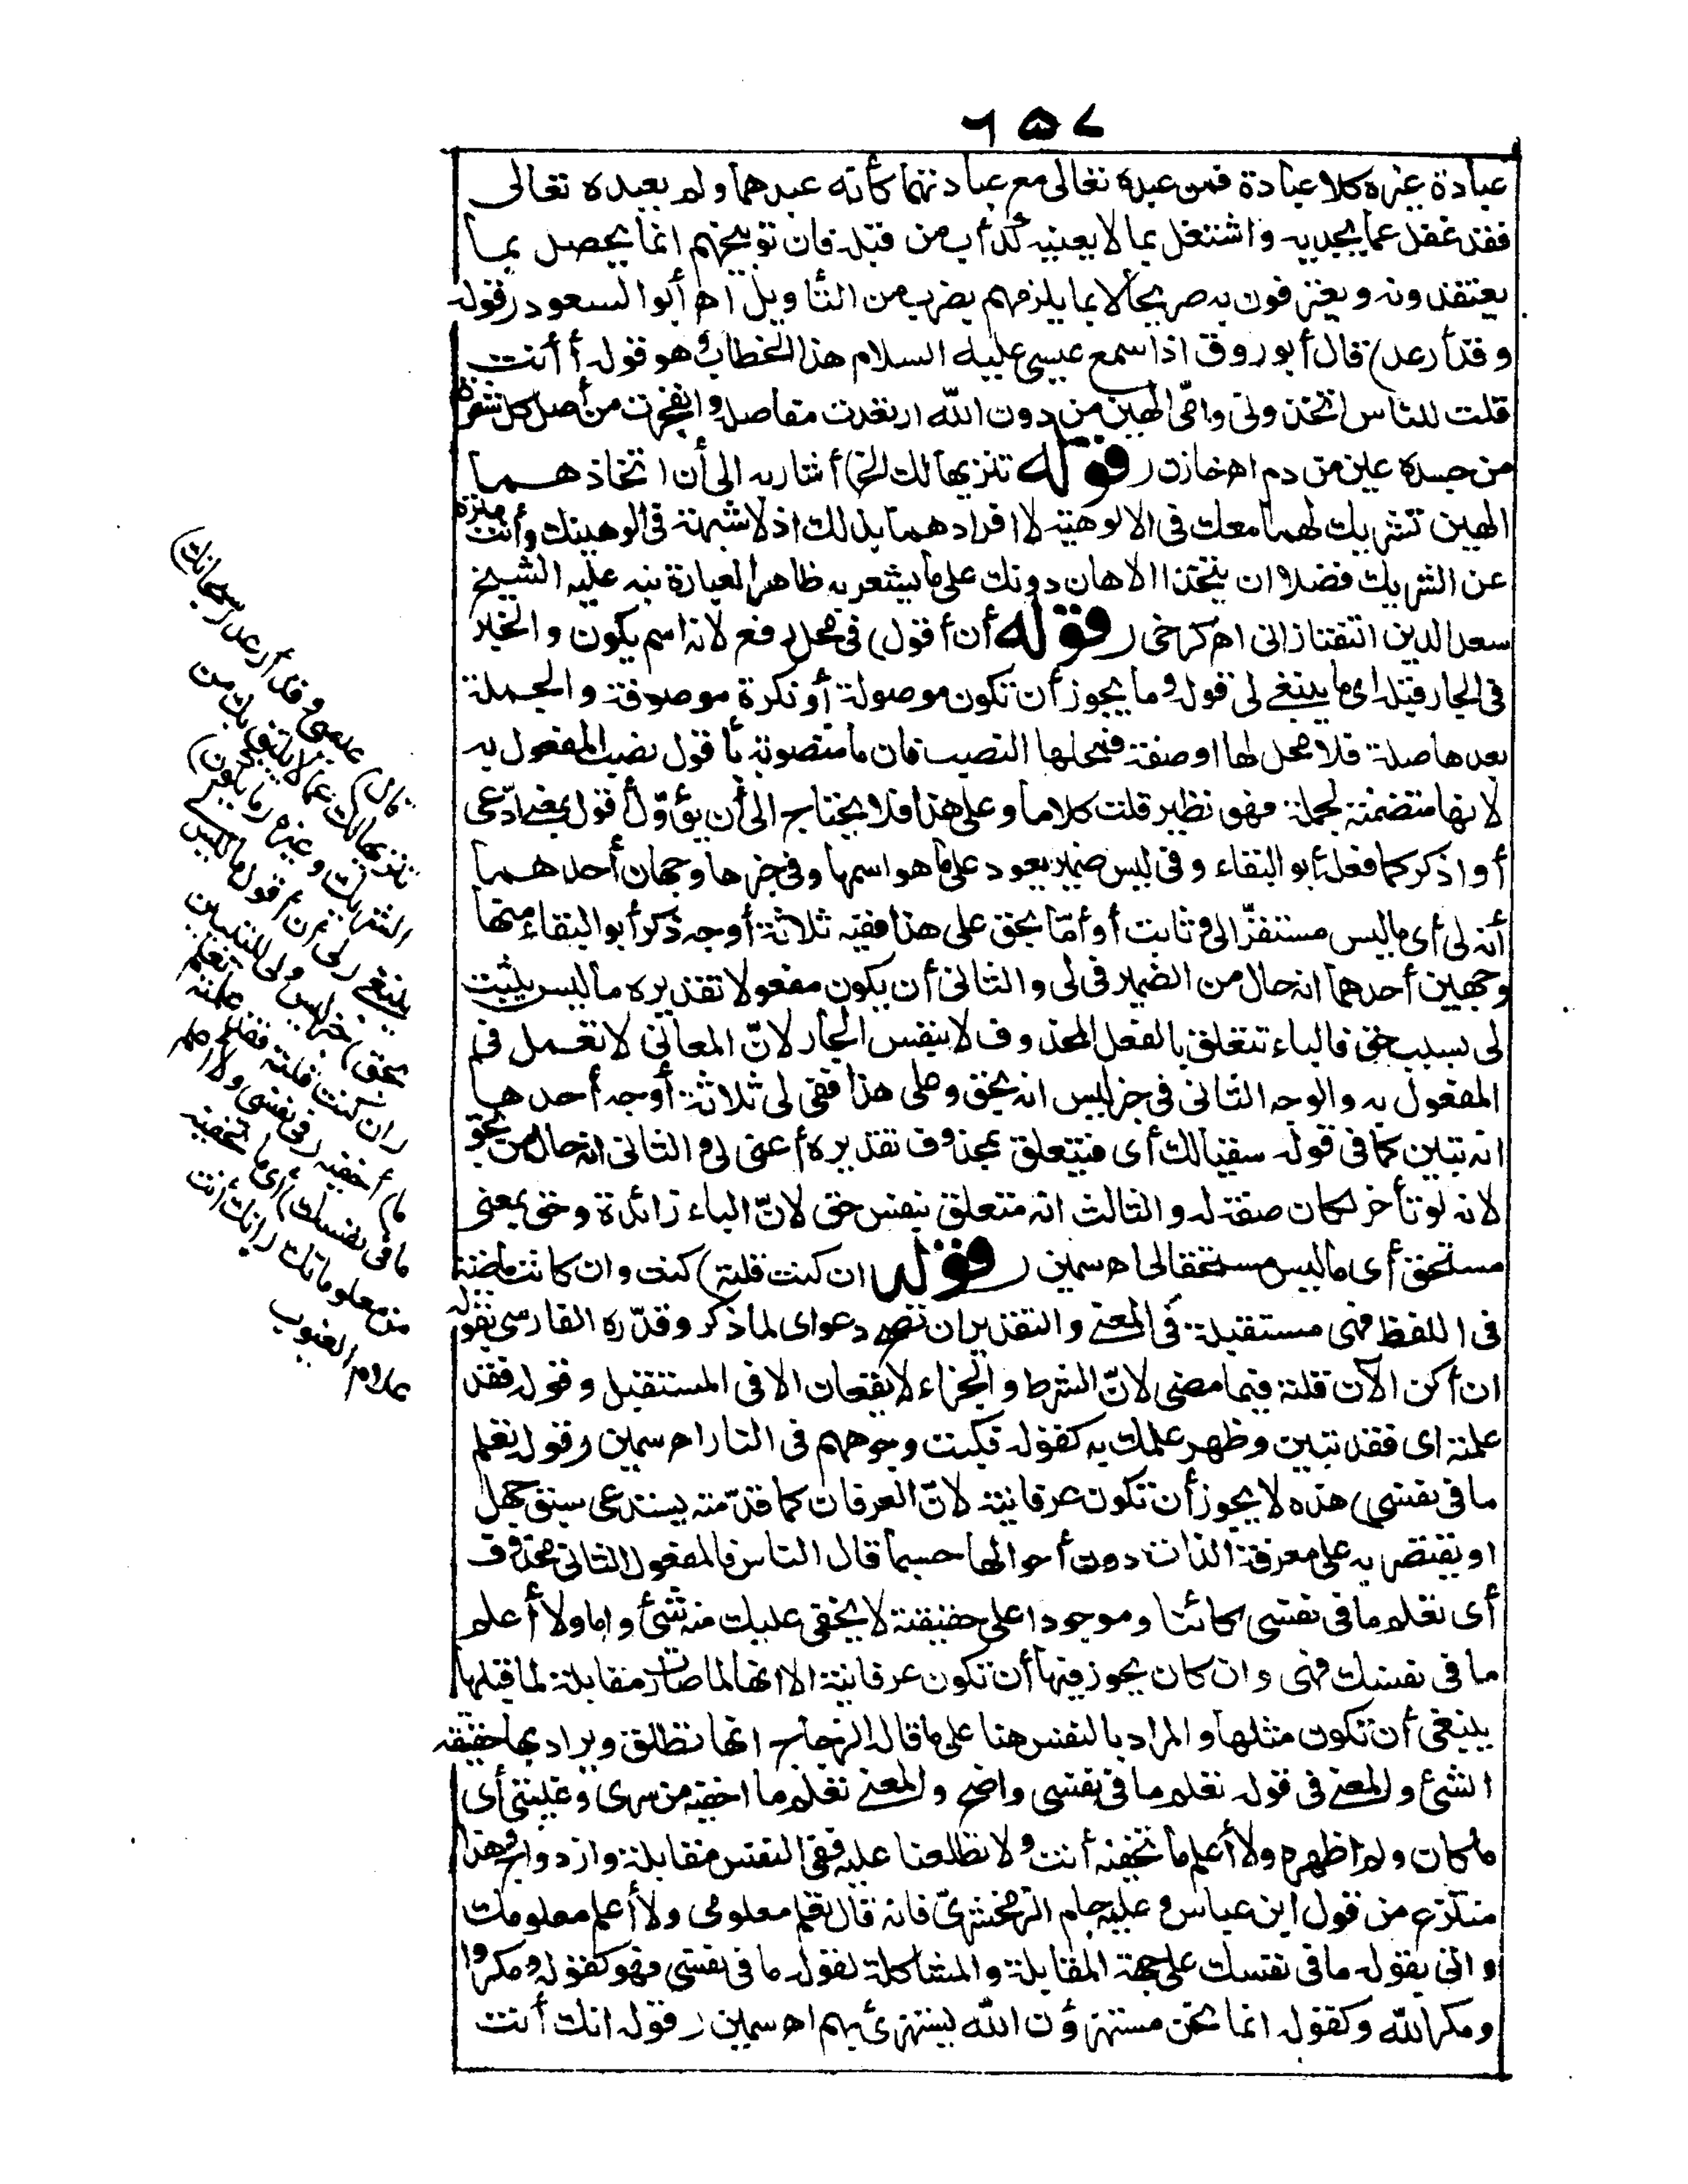 ٦٥٧
عبادة غيره كلا عبادة فمن عبده تعالى مع عبادتهما كأنه عبدهما ولم يعبده تعالى
فقد غفل عما يجديه واشتغل بما لا يعنيه كدأب من قبله فان توبيخهم انما يحصل بما
يعتقدونه ويعترفون به صريحا لا بما يلزمهم بضرب من التأويل اه أبو السعود (قوله
وقد أرعد) قال أبو روق اذا سمع عيسى عليه السلام هذا الخطاب وهو قوله أأنت
قلت للناس اتخذوني وامّي الهين من دون الله ارتعدت مفاصله وانفجرت من أصل كل شعرة
من جسده عين من دم اه خازن (قوله تنزيها لك الخ) أشار به الى أن اتخاذهما
الهين تشريك لهما معك في الالوهية لا افرادهما بذلك اذ لا شبهة في الوهيتك وأنت منزه
عن الشريك فضلا ان يتخذا الاهان دونك على ما يشعر به ظاهر العبارة نبه عليه الشيخ
سعد الدين التفتازاني اه كرخى (قوله أن أقول) في محل رفع لانه اسم يكون والخبر
في الجار قبله اى ما ينبغي لى قوله وما يجوز أن تكون موصولة أو نكرة موصوفة والجملة
بعدها صلة فلا محل لها او صفة فمحلها النصب فان ما منصوبة بأقول نصب المفعول به
لانها متضمنة لجملة فهو نظير قلت كلاما وعلى هذا فلا يحتاج الى أن يؤوّل أقول بمعنى ادّعى
أو اذكر كما فعله أبو البقاء وفى ليس ضمير يعود على ما هو اسمها وفى خبرها وجهان أحدهما
أنه لى أى ما ليس مستقرّا لى وثابت أو أمّا بحق على هذا ففيه ثلاثة أوجه ذكر أبو البقاء منها
وجهين أحدهما انه حال من الضمير فى لى والثانى أن يكون مفعولا تقديره ما ليس يثبت
لى بسبب حق فالباء تتعلق بالفعل المحذوف لا بنفس الجار لانّ المعانى لا تعمل فى
المفعول به والوجه الثانى فى خبر ليس انه بحق وعلى هذا ففى لى ثلاثة أوجه أحدها
انه تبيين كما فى قوله سقيا لك أى فيتعلق بمحذوف تقديره أعنى لى والثانى انه حال من بحق
لانه لو تأخر لكان صفة له والثالث انه متعلق بنفس حق لانّ الباء زائدة وحق بمعنى
مستحق أى ما ليس مستحقا لى اه سمين (قوله ان كنت قلته) كنت وان كانت ماضية
فى اللفظ فهى مستقبلة فى المعنى والتقدير ان تصح دعواى لما ذكر وقدّره الفارسى بقوله
ان أكن الآن قلته فيما مضى لانّ الشرط والجزاء لا يقعان الا فى المستقبل وقوله فقد
علمته اى فقد تبين وظهر علمك به كقوله فكبت وجوههم فى النار اه سمين (قوله تعلم
ما فى نفسى) هذه لا يجوز أن تكون عرفانية لانّ العرفان كما قدّمته يستدعى سبق جهل
او يقتصر به على معرفة الذات دون أحوالها حسبما قال الناس فالمفعول الثانى محذوف
أى تعلم ما فى نفسى كائنا وموجودا على حقيقته لا يخفى عليك منه شئ واما ولا أعلم
ما فى نفسك فهى وان كان يجوز فيها أن تكون عرفانية الا انها لما صارت مقابلة لما قبلها
ينبغى أن تكون مثلها والمراد بالنفس هنا على ما قاله الزجاج انها تطلق ويراد بها حقيقة
الشئ والمعنى فى قوله تعلم ما فى نفسى واضح والمعنى تعلم ما اخفيه من سرى وغيبتى أى
ما كان ولم اظهره ولا أعلم ما تخفيه أنت ولا تطلعنا عليه ففى النفس مقابلة وازدواج وهذا
منتزع من قول ابن عباس وعليه حام الزمخشرىّ فانه قال تعلم معلومى ولا أعلم معلومك
واتى بقوله ما فى نفسك على جهة المقابلة والمشاكلة لقوله ما فى نفسى فهو كقوله ومكروا
ومكر الله وكقوله انما نحن مستهزؤن الله يستهزئ بهم اه سمين (قوله انك أنت
(قال) عيسى وقد أرعد (سبحانك)
تنزيها لك عما لا يليق بك من
الشريك وغيره (ما يكون)
ينبغى (لى أن أقول ما ليس لى
بحق) خبر ليس ولى للتبيين
(ان كنت قلته فقد علمته تعلم
ما) أخفيه (فى نفسى ولا أعلم
ما فى نفسك) أى ما تخفيه
من معلوماتك (انك أنت
علام الغيوب